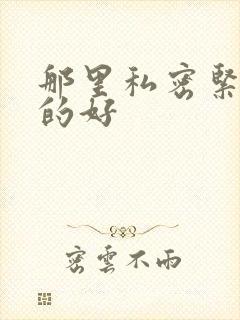 那里私密緊
的好
密雲不雨